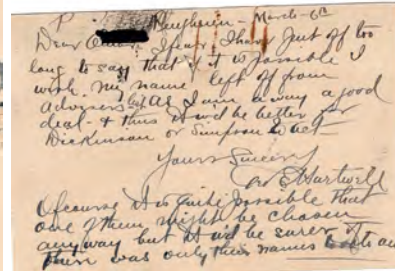 P
Hingham - March - 6th
Dear I fear I have put off too
long to say that if it is possible I
wish my name left off from
advisers list As I am away a good
deal - & thus it w'd be better for
Dickinson or Simpson to act -
Yours Sincerely
Hartwell
Of course it is quite possible that
one of them might be chosen
anyway but it w'd be surer if
there was only their names